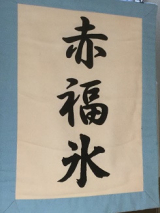 赤福氷